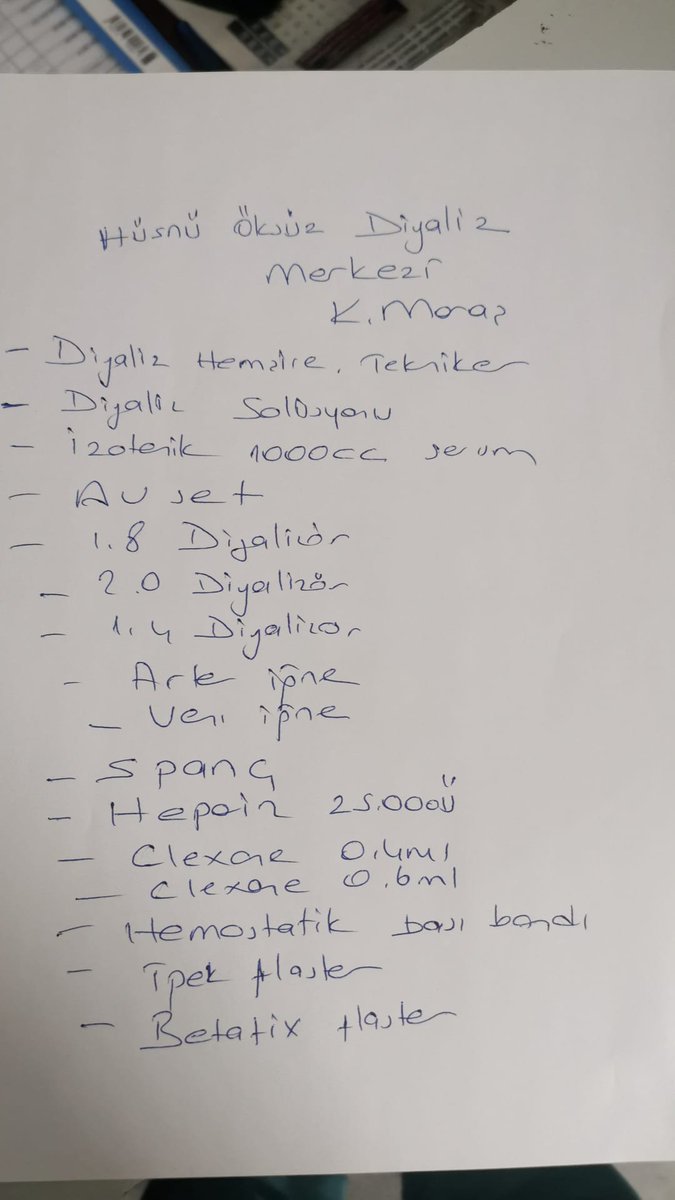 Hüsnü Öksüz Diyaliz
Merkezi
K.Maraş
- Diyaliz Hemşire. Tekniker
- Diyaliz Solüsyonu
- İzotonik 1000cc serum
- AV set
- 1.8 Diyalizör
- 2.0 Diyalizör
- 1.4 Diyalizor
- Arter iğne
- Ven iğne
- Spanç
- Hepain 25.000Ü
- Clexane 0.4ml
- Clexane 0.6ml
- Hemostatik bası bandı
- İpek flaster
- Betafix flaster